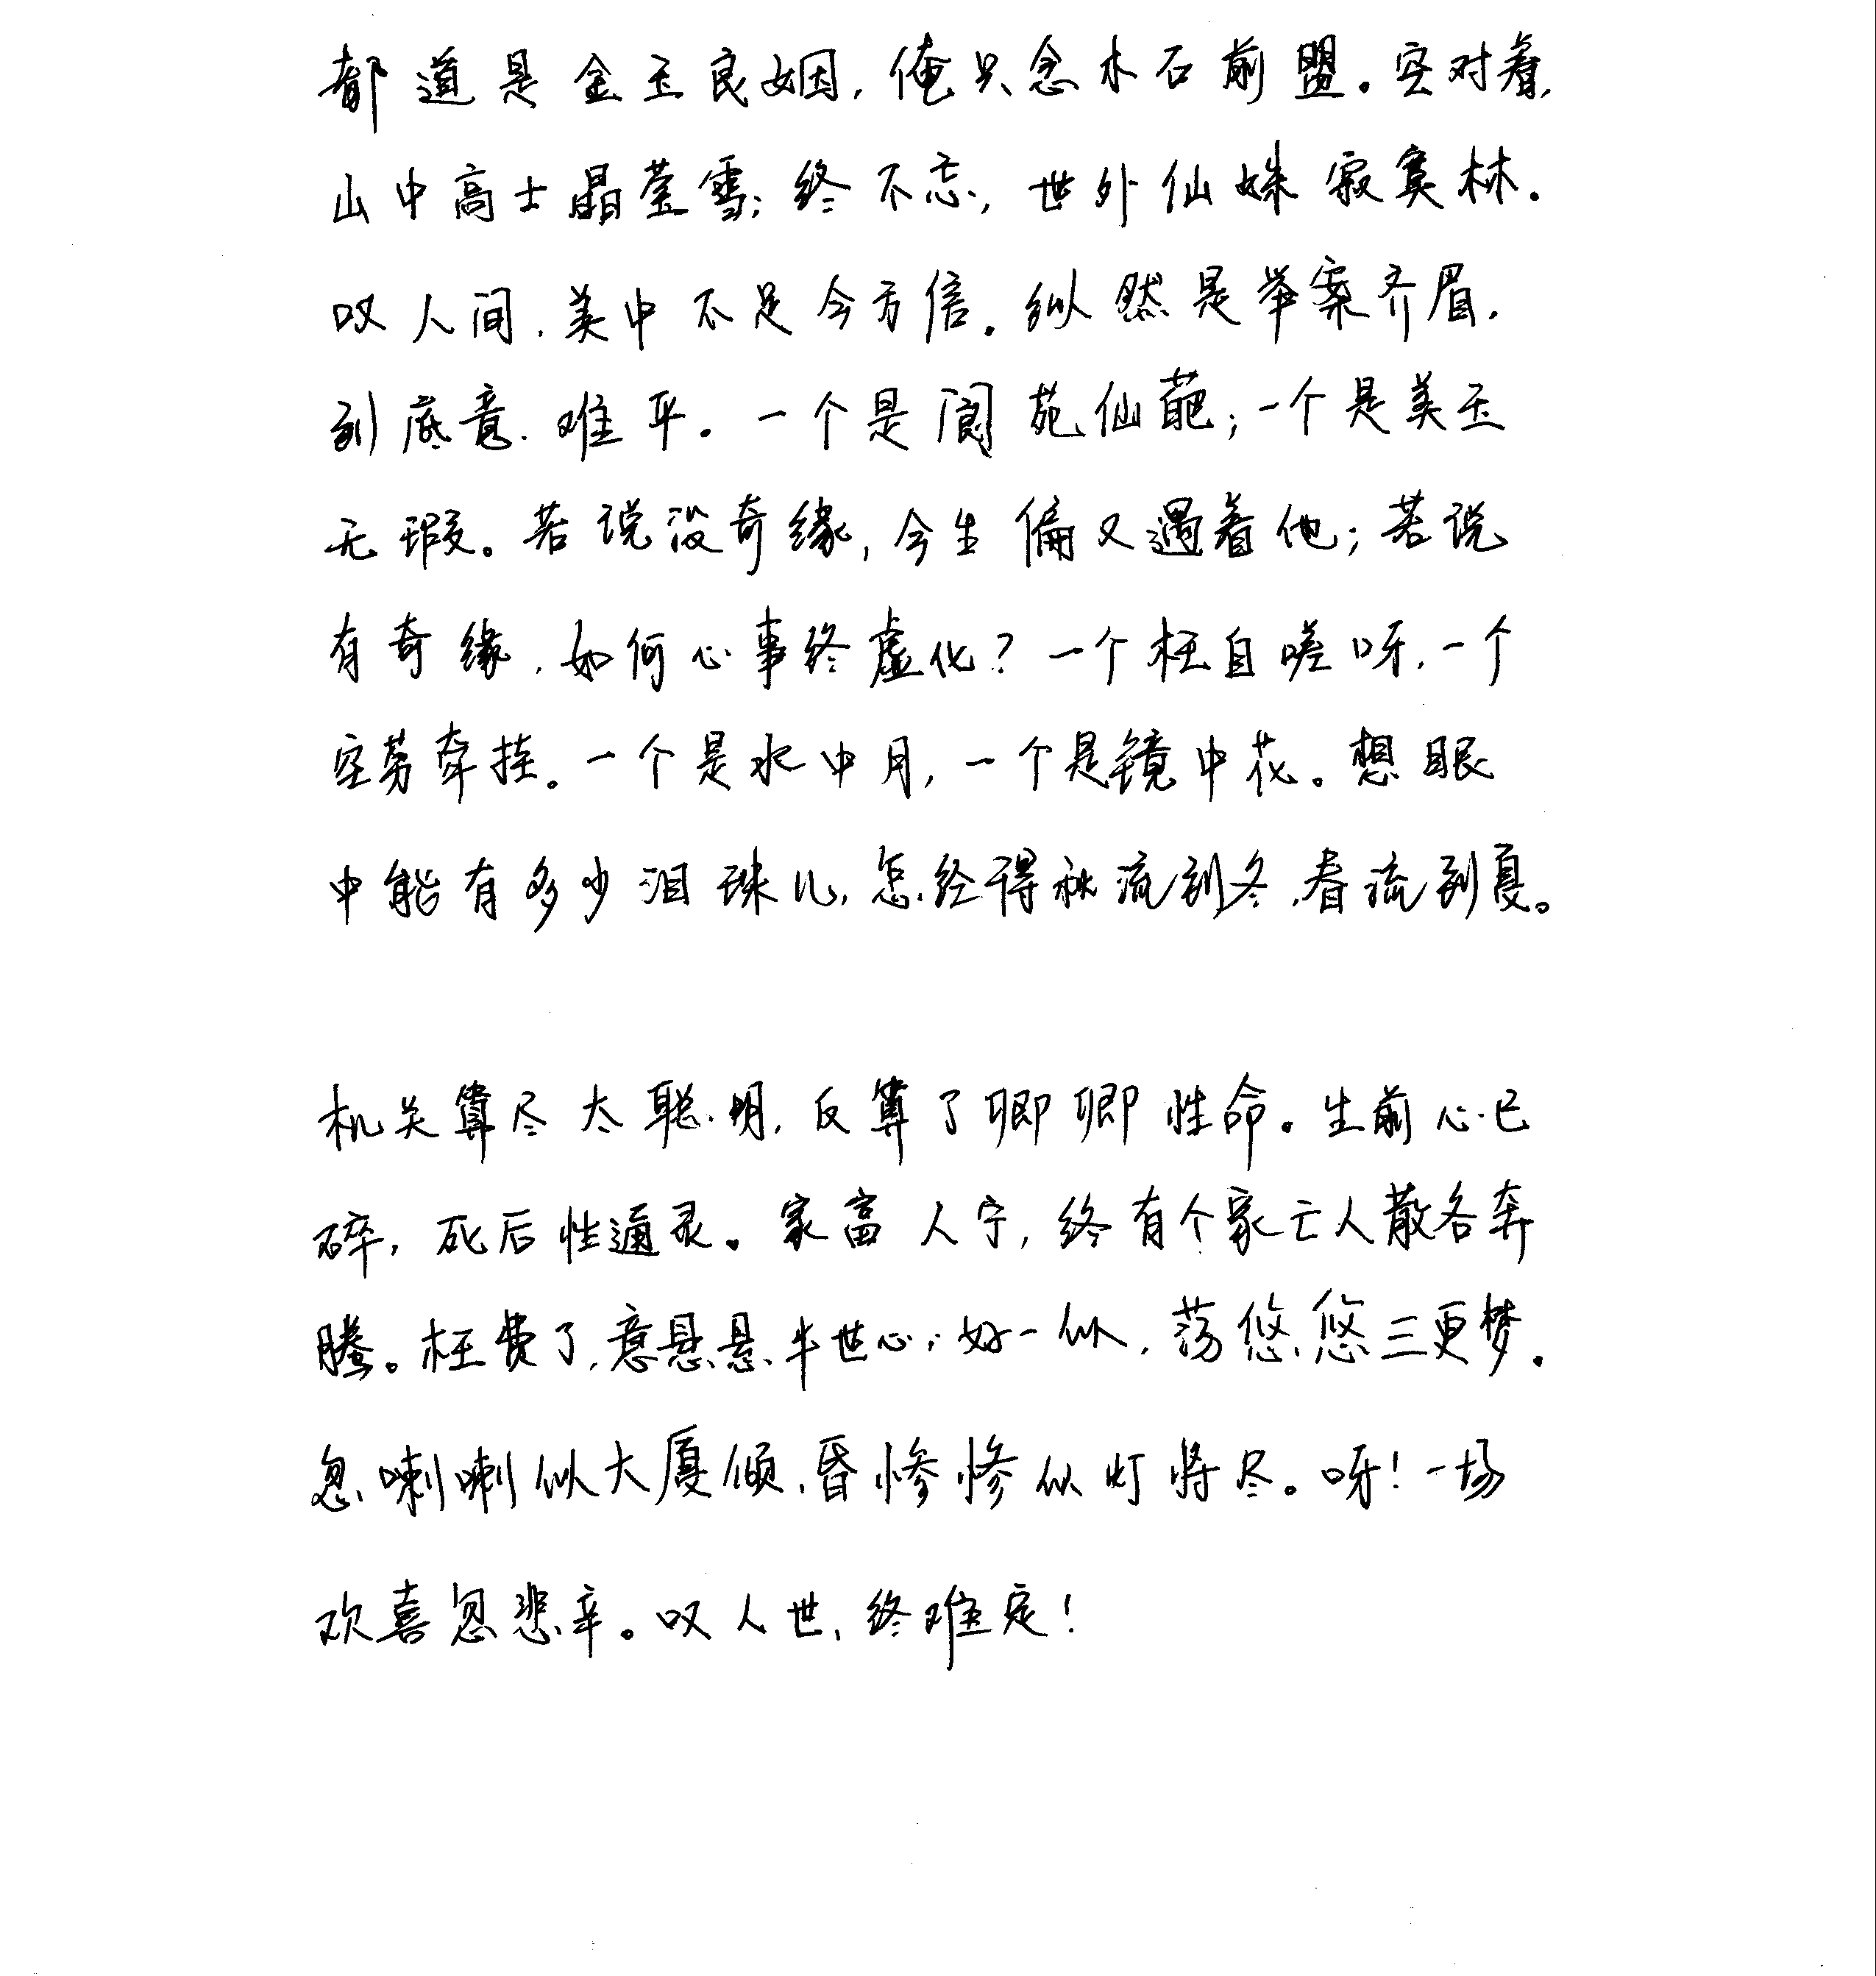 都道是金玉良姻，俺只念木石前盟。空对着，
山中高士晶莹雪；终不忘，世外仙姝寂寞林。
叹人间，美中不足今方信。纵然是举案齐眉，
到底意难平。一个是阆苑仙葩；一个是美玉
无瑕。若说没奇缘，今生偏又遇着他；若说
有奇缘，如何心事终虚化？一个枉自嗟呀，一个
空劳牵挂。一个是水中月，一个是镜中花。想眼
中能有多少泪珠儿，怎经得秋流到冬，春流到夏。
机关算尽太聪明，反算了卿卿性命。生前心已
碎，死后性通灵。家富人宁，终有个家亡人散各奔
腾。枉费了，意悬悬半世心；好一似，荡悠悠三更梦。
忽喇喇似大厦倾，昏惨惨似灯将尽。呀！一场
欢喜忽悲辛。叹人世，终难定！